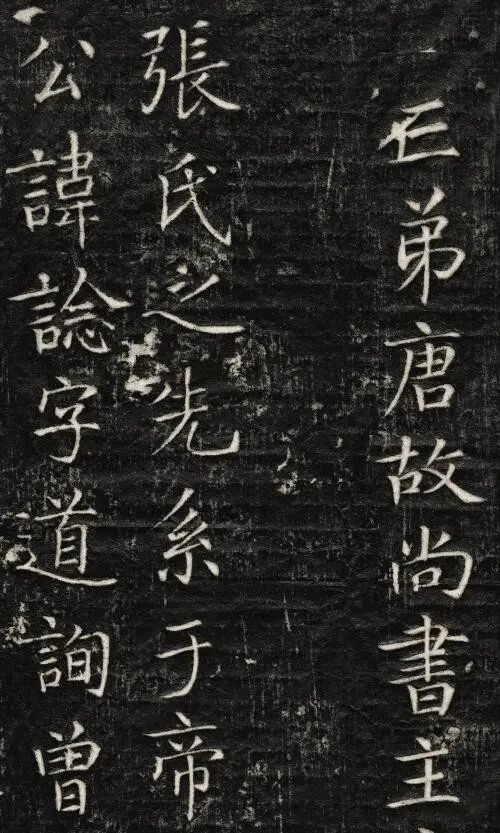 弟唐故尚書主
張氏之先系于帝
公諱諗字道詢曾